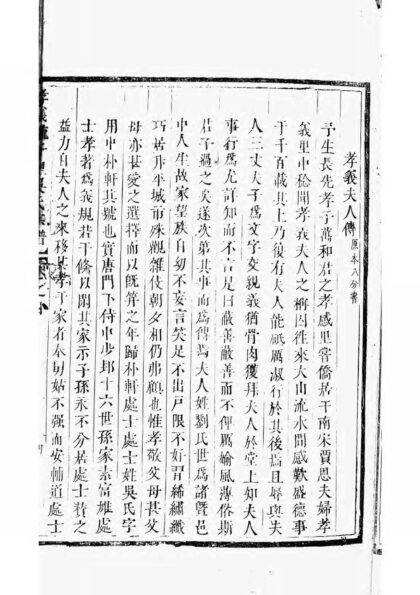 孝義夫人傳原本八分書
予生長先孝子萬和君之孝感里嘗僑居于南宋賈恩夫婦孝
義里中稔聞孝義夫人之柳因往來大山流水間感歎盛德事
于千百載其上乃復有夫人能砥厲淑行於其後焉且辱與夫
人三丈夫子為文字交親義猶骨肉獲拜夫人於堂上知夫人
事行為尤詳知而不言是曰蔽善蔽善而不俾厲媮風薄俗斯
君子過之矣遂次第其事而為傳焉夫人姓劉氏世為諸暨邑
中人生故家望族自幼不妄言笑足不出戸限不好習絺繡纖
巧居非平城市殊觀雜伎朝夕相仍弗顧也惟孝敬父母甚父
母亦甚愛之選擇而以旣筓之年歸朴軒處士處士姓吳氏字
用中朴軒其號也實唐門下侍中少邦十六世孫家素富雄處
士孝著為義規若干條以閑其家示子孫永不分若處士
益力自夫人之來移其孝于家者奉舅姑不强而安輔道處士